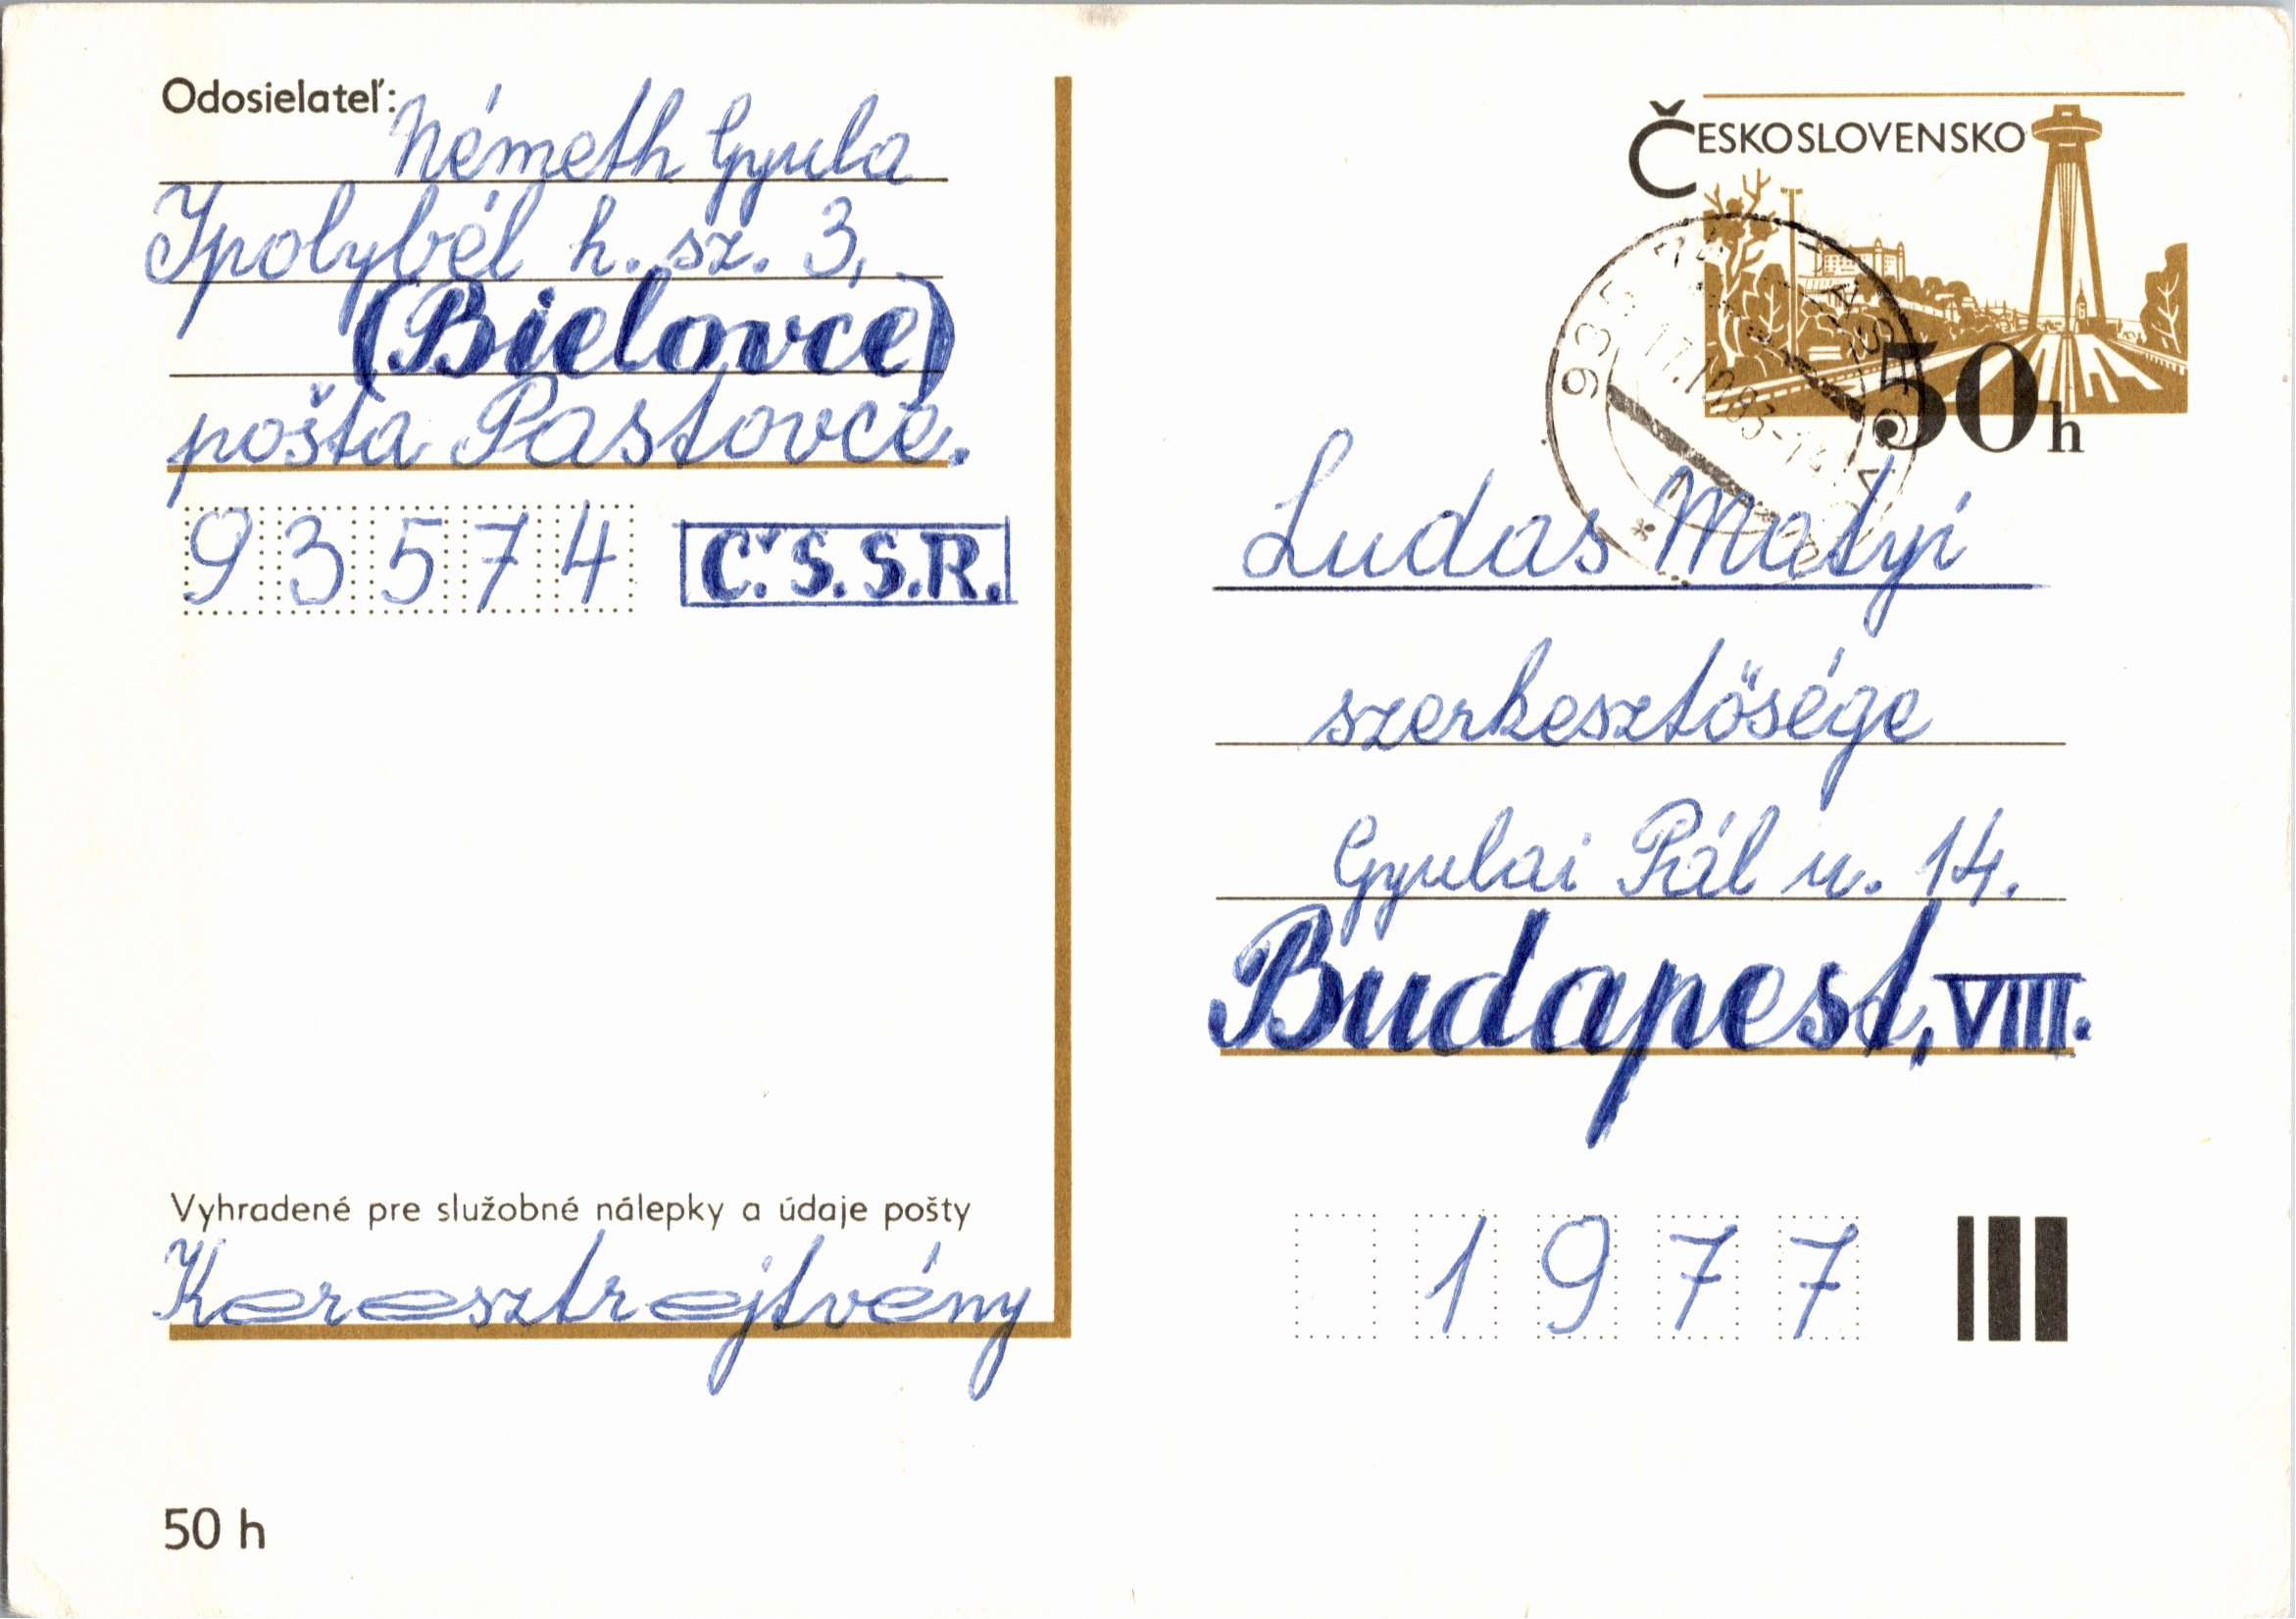 Odosielateľ:
Németh Gyula
Ipolybél h. sz. 3,
(Bielovce)
pošta Pastovce.
93574
Č.S.S.R.
Vyhradené pre služobné nálepky a údaje pošty
Keresztrejtvény
50 h
ČESKOSLOVENSKO
50h
935 74
17.10.83-14
Ludas Matyi
szerkesztősége
Gyulai Pál u. 14.
Budapest, VIII.
1977